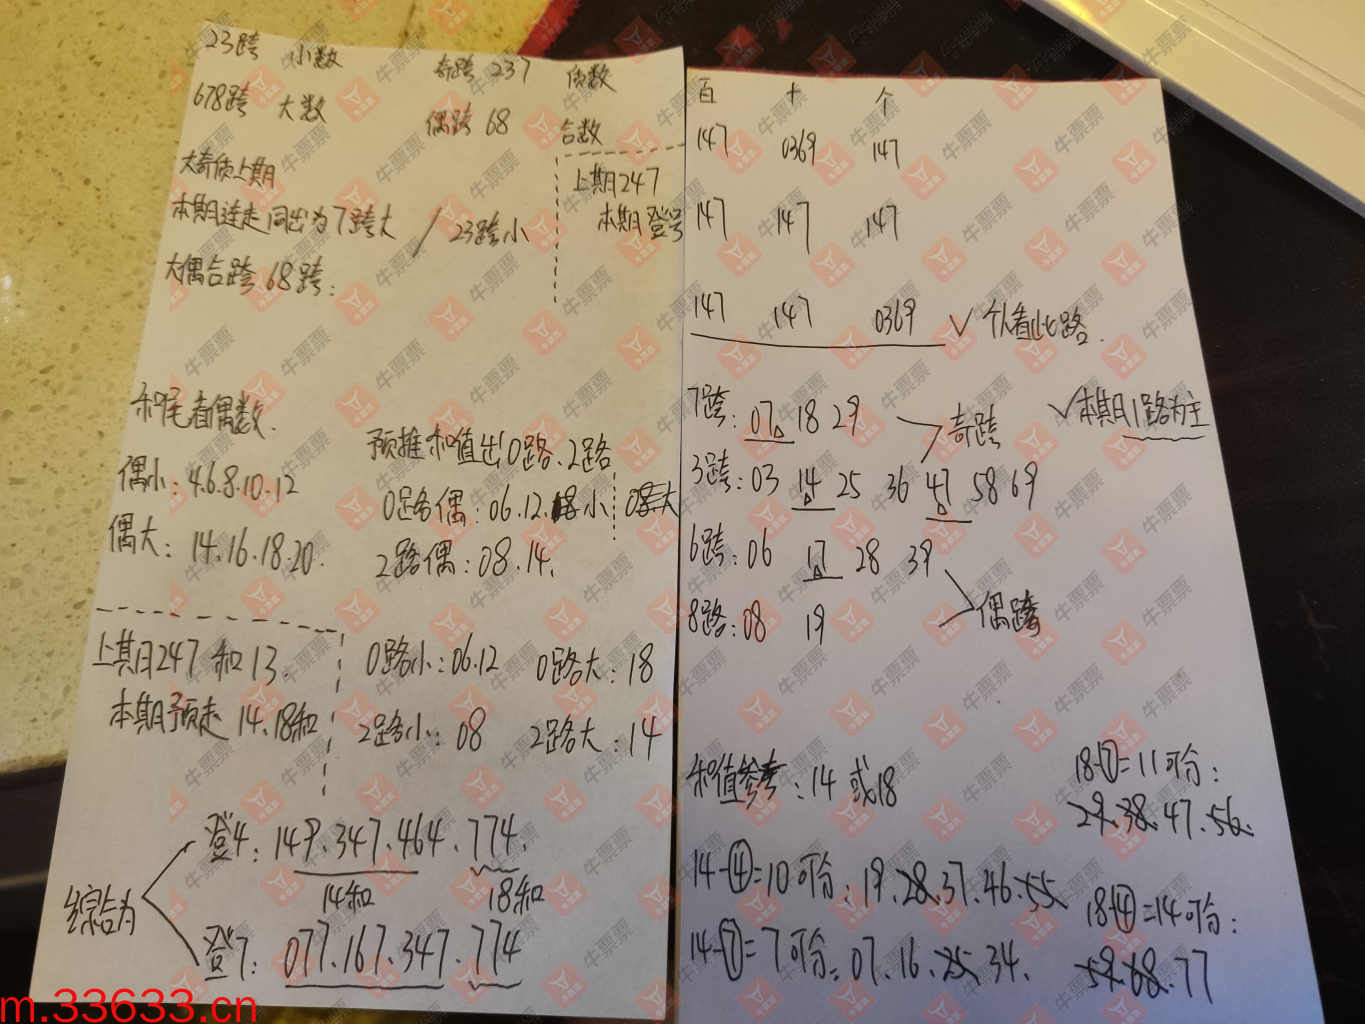 23跨 小数 奇跨 237 质数
678跨 大数 偶跨 68 合数
大奇质上期
本期连走同出为7跨大 / 23跨小
大偶合跨.68跨:
上期247
本期登号
和尾看偶数.
偶小: 4.6.8.10.12
偶大: 14.16.18.20.
预推和值出0路、2路
0路偶: 06.12.18 小 08大
2路偶: 08.14.
上期247 和13.
本期预走 14.18和
0路小: 06.12 0路大: 18
2路小: 08 2路大: 14
综合为
登4: 149.347.464.774.
14和 18和
登7: 077.167.347.774
百 十 个
147 0369 147
147 147 147
147 147 0369 √ 个人看此路.
7跨: 07 18 29 奇跨
√本期1路为主
3跨: 03 14 25 36 47 58 69
6跨: 06 17 28 39
8路: 08 19 偶跨
和值参考: 14 或18
14-④=10可分: 19.28.37.46.55
14-⑦=7可分: 07.16.25.34.
18-⑦=11可分:
29.38.47.56.
18-④=14可分:
59.68.77
牛票票
m.33633.cn